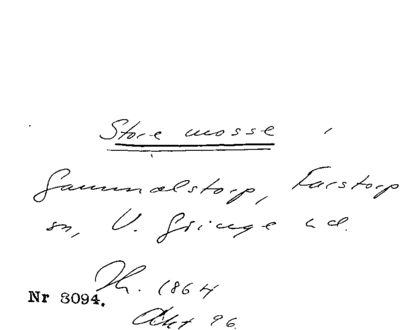 Store mosse
Gammalstorp, Farstorp
sn, V. Göinge hd.
Th. 1864
Nr 3094.
Akt 96.